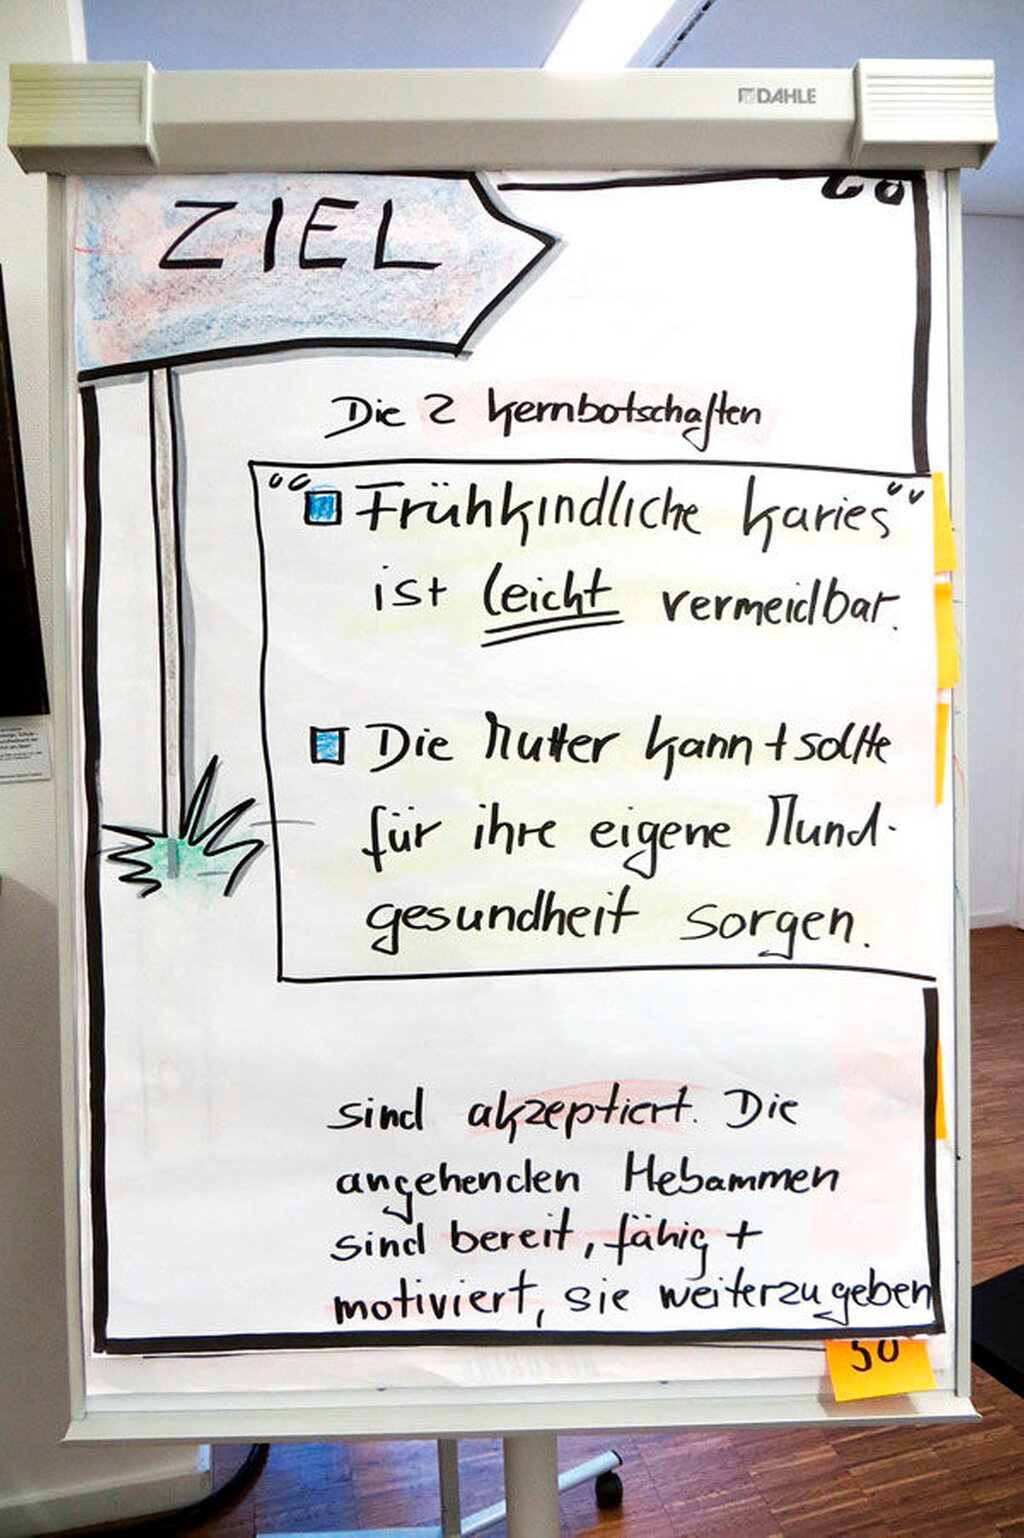 DAHLE
ZIEL
Die 2 Kernbotschaften
"Frühkindliche Karies"
ist leicht vermeidbar.
Die Mutter kann + sollte
für ihre eigene Mund-
gesundheit sorgen.
sind akzeptiert. Die
angehenden Hebammen
sind bereit, fähig +
motiviert, sie weiterzugeben